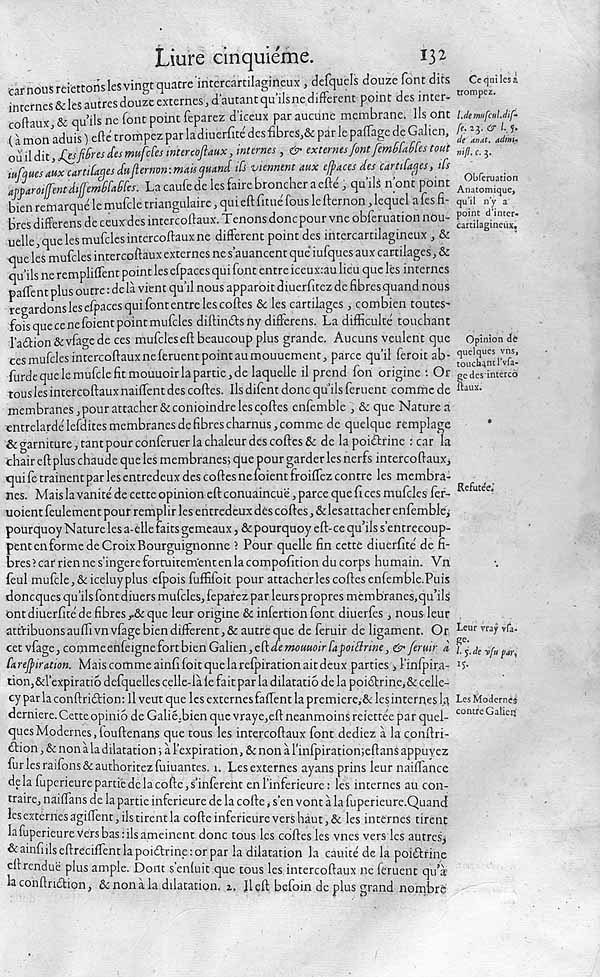 Liure cinquiéme. 132
car nous reiettons les vingt quatre intercartilagineux, desquels douze sont dits
internes & les autres douze externes, d'autant qu'ils ne different point des inter-
costaux, & qu'ils ne sont point separez d'iceux par aucune membrane. Ils ont
(à mon aduis) esté trompez par la diuersité des fibres, & par le passage de Galien,
où il dit, Les fibres des muscles intercostaux, internes, & externes sont semblables tout
iusques aux cartilages du sternon: mais quand ils viennent aux espaces des cartilages, ils
apparoissent dissemblables. La cause de les faire broncher a esté, qu'ils n'ont point
bien remarqué le muscle triangulaire, qui est situé sous le sternon, lequel a ses fi-
bres differens de ceux des intercostaux. Tenons donc pour vne obseruation nou-
uelle, que les muscles intercostaux ne different point des intercartilagineux, &
que les muscles intercostaux externes ne s'auancent que iusques aux cartilages, &
qu'ils ne remplissent point les espaces qui sont entre iceux: au lieu que les internes
passent plus outre: de là vient qu'il nous apparoit diuersitez de fibres quand nous
regardons les espaces qui sont entre les costes & les cartilages, combien toutes-
fois que ce ne soient point muscles distincts ny differens. La difficulté touchant
l'action & vsage de ces muscles est beaucoup plus grande. Aucuns veulent que
ces muscles intercostaux ne seruent point au mouuement, parce qu'il seroit ab-
surde que le muscle fit mouuoir la partie, de laquelle il prend son origine: Or
tous les intercostaux naissent des costes. Ils disent donc qu'ils seruent comme de
membranes, pour attacher & conioindre les costes ensemble, & que Nature a
entrelardé lesdites membranes de fibres charnus, comme de quelque remplage
& garniture, tant pour conseruer la chaleur des costes & de la poictrine: car la
chair est plus chaude que les membranes; que pour garder les nerfs intercostaux,
qui se trainent par les entredeux des costes ne soient froissez contre les membra-
nes. Mais la vanité de cette opinion est conuaincuë, parce que si ces muscles ser-
uoient seulement pour remplir les entredeux des costes, & les attacher ensemble,
pourquoy Nature les a-elle faits gemeaux, & pourquoy est-ce qu'ils s'entrecoup-
pent en forme de Croix Bourguignonne? Pour quelle fin cette diuersité de fi-
bres? car rien ne s'ingere fortuitement en la composition du corps humain. Vn
seul muscle, & iceluy plus espois suffisoit pour attacher les costes ensemble. Puis
doncques qu'ils sont diuers muscles, separez par leurs propres membranes, qu'ils
ont diuersité de fibres, & que leur origine & insertion sont diuerses, nous leur
attribuons aussi vn vsage bien different, & autre que de seruir de ligament. Or
cet vsage, comme enseigne fort bien Galien, est de mouuoir la poictrine, & seruir à
la respiration. Mais comme ainsi soit que la respiration ait deux parties, l'inspira-
tion, & l'expiratiō desquelles celle-là se fait par la dilatatiō de la poictrine, & celle-
cy par la constrictiō: Il veut que les externes fassent la premiere, & les internes la
derniere. Cette opiniō de Galiē, bien que vraye, est neanmoins reiettée par quel-
ques Modernes, soustenans que tous les intercostaux sont dediez à la constri-
ction, & non à la dilatation; à l'expiration, & non à l'inspiration; estans appuyez
sur les raisons & authoritez suiuantes. 1. Les externes ayans prins leur naissance
de la superieure partie de la coste, s'inserent en l'inferieure: les internes au con-
traire, naissans de la partie inferieure de la coste, s'en vont à la superieure. Quand
les externes agissent, ils tirent la coste inferieure vers haut, & les internes tirent
la superieure vers bas: ils ameinent donc tous les costes les vnes vers les autres,
& ainsi ils estrecissent la poictrine: or par la dilatation la cauité de la poictrine
est renduë plus ample. Dont s'ensuit que tous les intercostaux ne seruent qu'à
la constriction, & non à la dilatation. 2. Il est besoin de plus grand nombre
Ce qui les a
trompez.
l. de muscul. dis-
se. 23. & l. 5.
de anat. admi-
nist. c. 3.
Obseruation
Anatomique,
qu'il n'y a
point d'inter-
cartilagineux.
Opinion de
quelques vns,
touchant l'vsa-
ge des interco
staux.
Refutée.
Leur vray vsa-
ge.
l. 5. de vsu par,
15.
Les Modernes
contre Galien